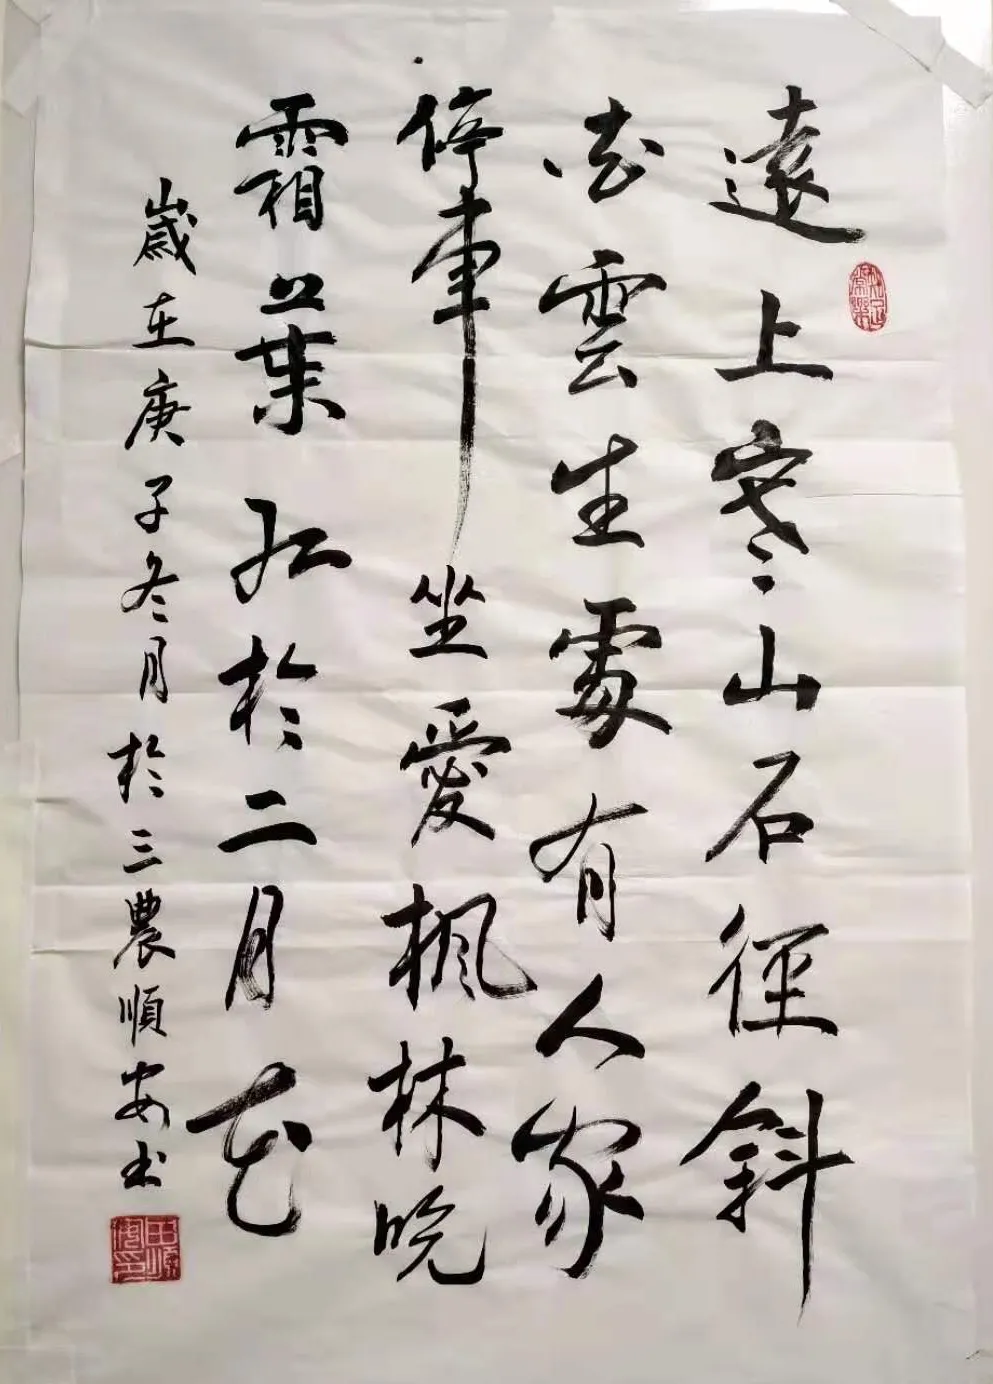 遠上寒山石徑斜
白雲生處有人家
停車坐愛楓林晚
霜葉紅於二月花
歲在庚子冬月於三農順安书
知足常樂
田順安印